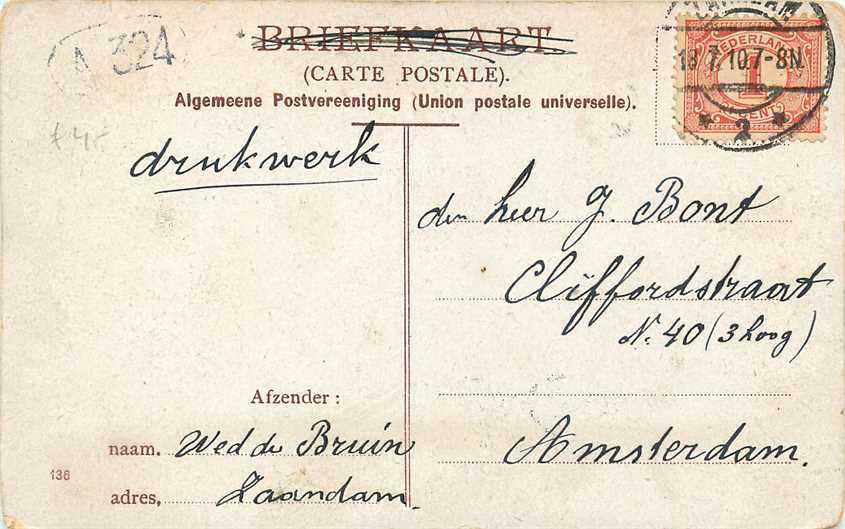 A 324
BRIEFKAART
(CARTE POSTALE).
Algemeene Postvereeniging (Union postale universelle).
NEDERLAND
1
CENT
18 7.10 7-8N
2
f 4,-
drukwerk
den heer J. Bont
Cliffordstraat
N. 40 (3 hoog)
Amsterdam.
Afzender:
naam. Wed de Bruin
adres, Zaandam.
136